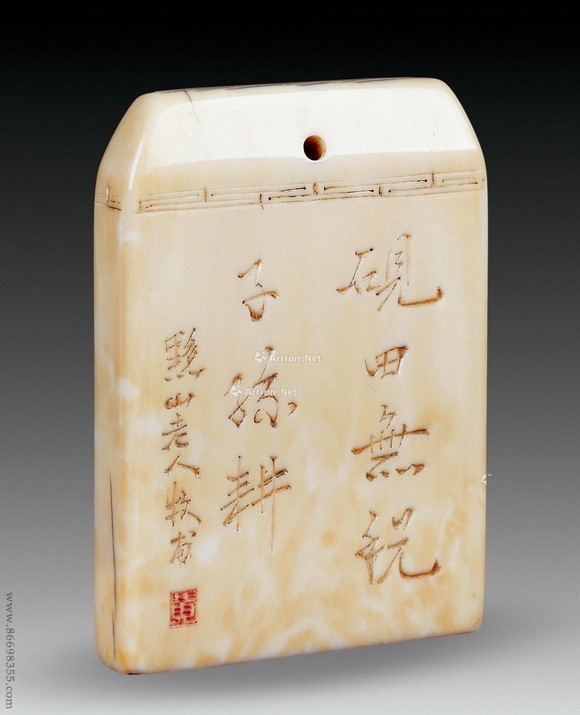 硯田無税
子孫耕
黟山老人牧甫
黄
Artron.Net
Artron.Net
www.86698355.com